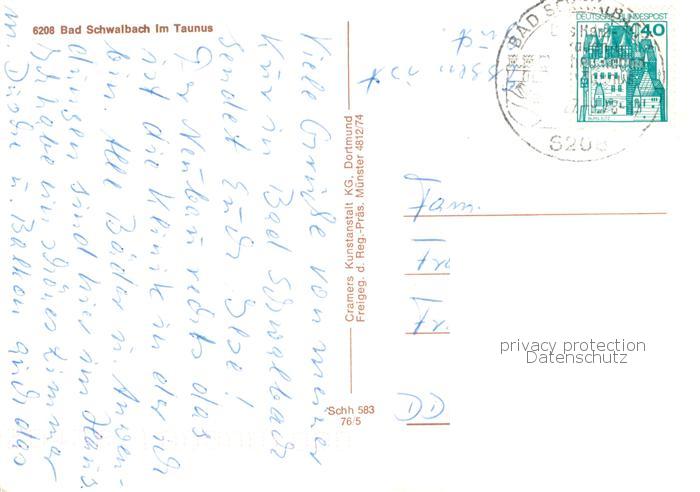 6208 Bad Schwalbach im Taunus
Viele Grüße von meiner
Kur in Bad Schwalbach
sendet Euch Ilse!
Der Neubau rechts das
ist die Klinik in der ich
bin. Alle Bäder u. Anwen-
dungen sind hier im Haus.
Ich habe ein schönes Zimmer
m. Dusche u. Balkon auch das
Essen ist
Cramers Kunstanstalt KG, Dortmund
Freigeg. d. Reg.-Präs. Münster 4812/74
Schh 583
76/5
BAD SCHWALBACH
6208
DEUTSCHE BUNDESPOST
40
BURG ELTZ
Fam.
Fr.
DD
privacy protection
Datenschutz